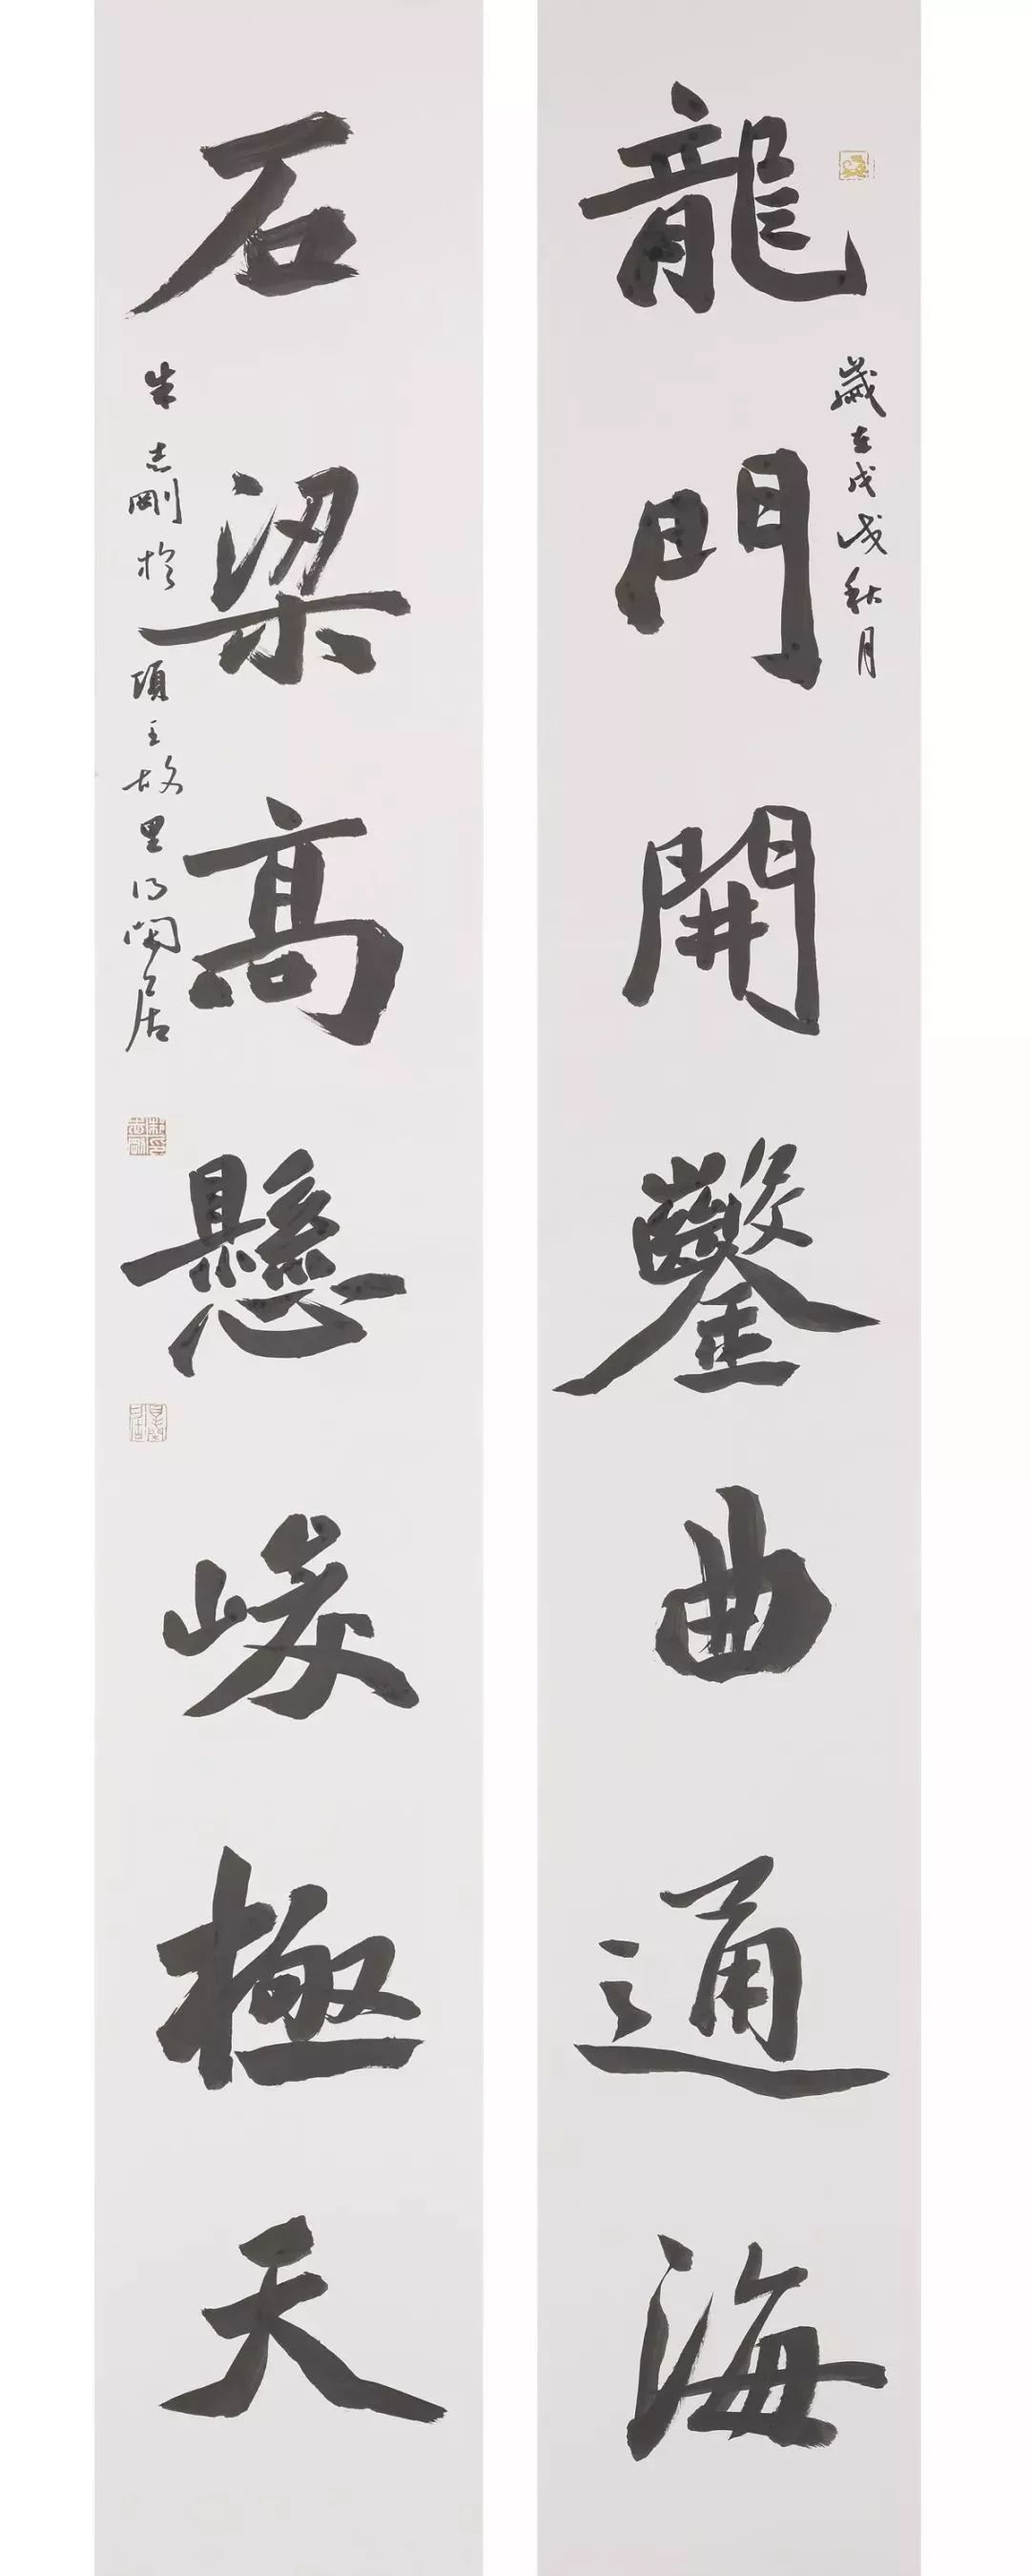 龍門開鑿曲通海
歲在戊戌秋月
石梁高懸峻極天
朱志剛於項王故里得閒居